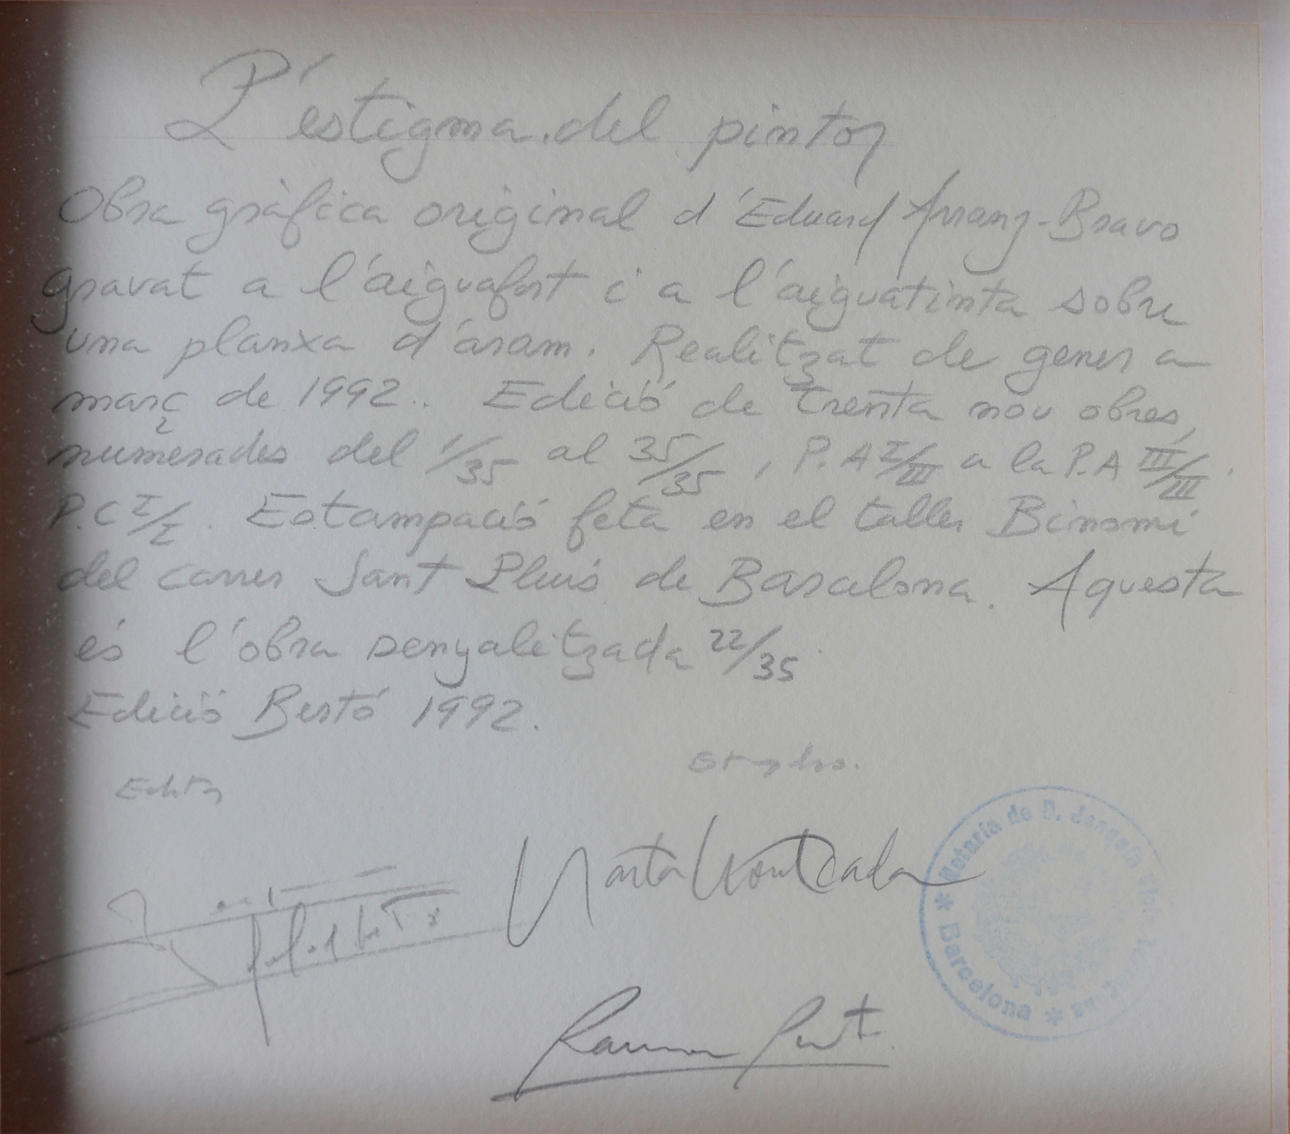 L'éstigma del pintor
Obra gràfica original d'Eduard Arranz-Bravo
gravat a l'aiguafort i a l'aiguatinta sobre
una planxa d'aram. Realitzat de gener a
març de 1992.. Edició de trenta nou obres,
numerades del 1/35 al 35/35, P.A I/III a la P.A III/III.
P.C I/I. Estampació feta en el taller Binomi
del carrer Sant Lluís de Barcalona. Aquesta
és l'obra senyalitzada 22/35
Edició Bestó 1992.
Editor
Marta Montcada
Ramon
Notaria de D. Joaquín
Barcelona